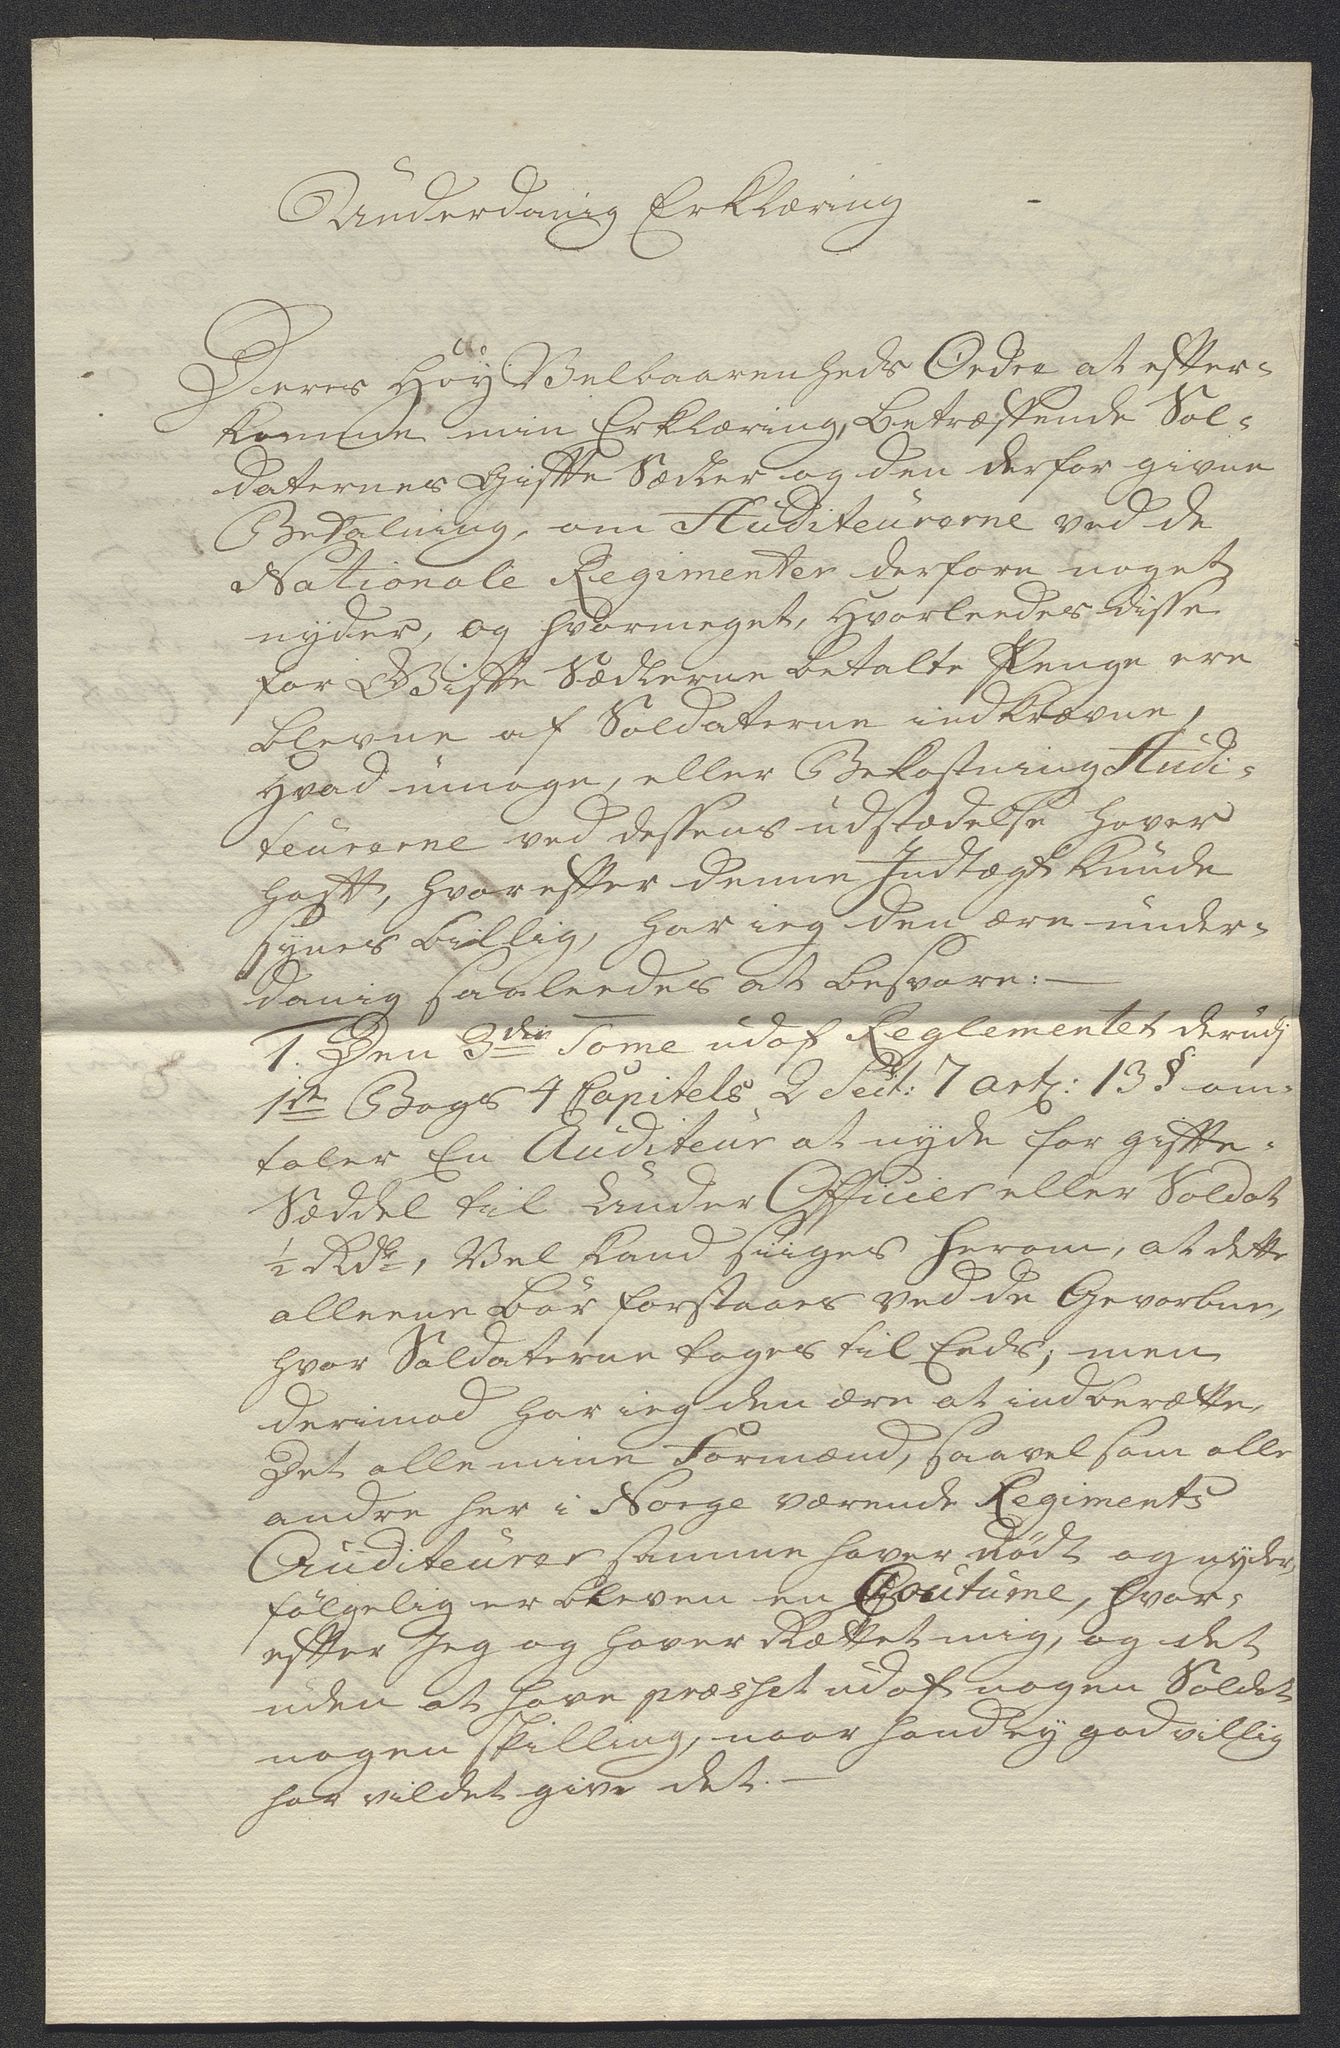 Underdanig Erklæring
Deres Höy Velbaarenheds Ordre at efter-
komme min Erklæring, betræffende Sol-
daternes Gifte Sædler og den derfor givne
Betalning, om Auditeurerne ved de
Nationale Regimenter derfore noget
nyder, og hvormeget, hvorleedes disse
for Gifte Sædlerne betalte Penge ere
blevne af Soldaterne indkrævne,
hvad umage, eller Bekostning Audi-
teurerne ved dessens udstædelse haver
hafft, hvorefter denne Indtægt kunde
synes billig, har ieg den ære under-
danig saaleedes at besvare:—
1. Den 3die Tome udaf Reglementet derudj
1ste Bogs 4 Capitels 2 Sect: 7 art: 13 § om-
taler En Auditeur at nyde for gifte-
Sæddel til Under Officier eller Soldat
½ Rdlr, Vel kand siiges herom, at dette
alleene bör forstaaes ved de Gevorbne,
hvor Soldaterne tages til Eeds; men
derimod har ieg den ære at indberætte,
Det alle mine Formænd, saavelsom alle
andre her i Norge værende Regiments
Auditeurer samme haver nödt og nyder,
fölgelig er bleven en Coutume, hvor-
efter Jeg og haver Rættet mig, og det
uden at have præsset udaf nogen Soldat
nogen skilling, naar hand ey godvillig
har vildet give det.—